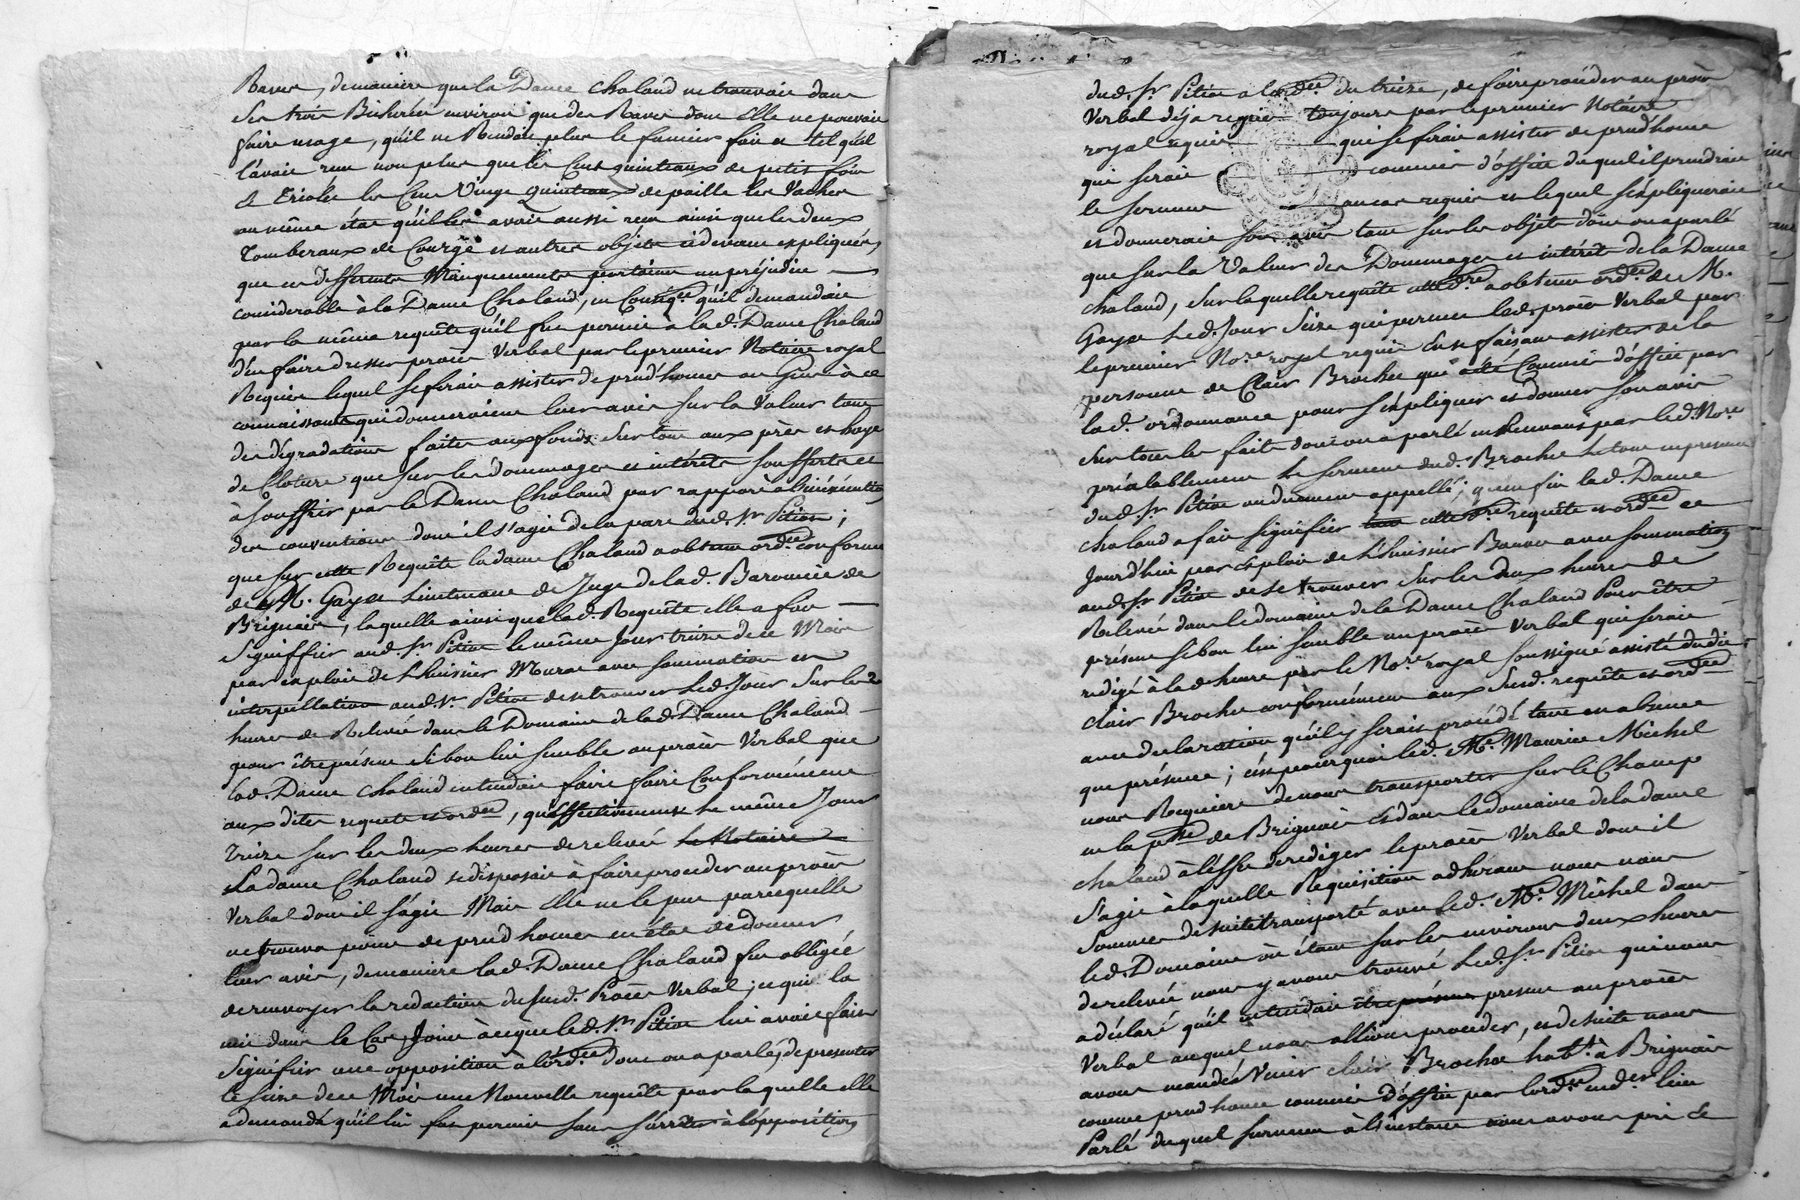 Raves, de maniere que la Dame Chaland ne trouvait dans
ses trois Bicherées environ que des Raves dont Elle ne pouvait
faire usage, qu'il ne Rendait plus le fumier fait et tel qu'il
l'avait reçu non plus que les Cent quintaux de petit foin
et Triolet les Cent Vingt quintaux de paille les Vaches
au même état qu'il les avait aussi reçu ainsi que les deux
Tomberaux de Courge et autres objets cidevant expliqués,
que ces differents Manquements portaient un préjudice
considerable à la Dame Chaland, en Conséqce qu'il demandait
par la même requête qu'il fut permis a la d. Dame Chaland
d'en faire dresser procès Verbal par le premier Notaire royal
Requis lequel se ferait assister de prud'homes ou Gens à ce
connaissants qui donneraient leur avis sur la Valeur tant
des dégradations faites aux fonds surtout aux près et haye
de Cloture que sur les dommages et intérêts soufferts et
à souffrir par la Dame Chaland par rapport à l'inéxécution
des conventions dont il s'agit de la part dud. Sr Pition ;
que sur cette Requête la dame Chaland a obtenu ordce conforme
de M. Gayet Lieutenant de Juge de la d. Baronnie de
Brignais, laquelle ainsi que lad. Requête elle a fait
signiffier aud. Sr Pition le même Jour treize de ce Mois
par exploit de L'huissier Murat avec sommation et
interpellation aud. Sr Pition de se trouver led. Jour Sur les 2
heures de Relevée dans le Domaine de lad. Dame Chaland
pour être présent si bon lui semble au procès Verbal que
lad. Dame Chaland entendait faire faire Conformément
aux dites requete et ordce, qu'effectivement le même Jour
treize sur les deux heures de relevée le Notaire
La dame Chaland se disposait à faire proceder au procès
Verbal dont il s'agit Mais Elle ne le put parcequ'elle
ne trouva point de prud'homes en état de donner
leur avis, de maniere lad. Dame Chaland fut obligée
de renvoyer la rédaction du susd. Procès Verbal ; ce qui la
mit dans le Cas Joint à ce que led. Sr Pition lui avait fait
Signifier une opposition à l'ordce dont on a parlé, de presenter
le seize de ce Mois une Nouvelle requête par laquelle elle
a demandé qu'il lui fut permis sans s'arrêter à l'opposition
dud. Sr Pition a lordce du treize, de faire procéder au procès
Verbal déja requis toujours par le premier Notaire
royal requis qui se ferait assister de prud'home
qui serait commis d'office duquel il prendrait
le serment au cas requis et lequel s'expliquerait
et donnerait son avis tant sur les objets dont on a parlé
que sur la Valeur des Dommages et intérêts de la Dame
Chaland, sur laquelle requête a obtenu ordce de M.
Gayet led. Jour Seize qui permet led. procès Verbal par
le premier Nore royal requis en se faisant assister de la
personne de Clair Brochet qui a été Commis d'office par
lad. ordonnance pour s'expliquer et donner son avis
sur tous les faits dont on a parlé en Recevant par led. Nore
préalablement le serment dud. Brochet le tout en presence
dud. Sr Pition ou duement appellé ; qu'enfin lad. Dame
Chaland a fait signifier cette requête et ordce ce
Jourd'hui par exploit de L'huissier avec sommation
aud. Sr Pition de se trouver Sur les deux heures de
Relevée dans le domaine de la Dame Chaland Pour être
présent si bon lui semble au procès Verbal qui serait
redigé à lad. heure par le Nore royal soussigné assisté dudit
Clair Brochet conformément aux susd. requête et ordce
avec declaration qu'il y serait procédé tant en absence
que présence ; c'est pourquoi led. Me Maurice Michel
nous Requiert de nous transporter sur le Champ
en la psse de Brignais et dans le domaine de la dame
Chaland à l'effet de rediger le procès Verbal dont il
s'agit à laquelle Requisition adherant nous nous
sommes de suite transporté avec led. Me Michel dans
led. Domaine où étant sur les environs deux heures
de relevée nous y avons trouvé Led. Sr Pition qui nous
a déclaré qu'il entendait être présent present au procès
Verbal auquel nous allions proceder, et de suite nous
avons mandé Venir Clair Brochet habt. à Brignais
comme prud'home commis d'office par lordce cud. en
Parlé duquel serment à l'instant nous avons pris Le